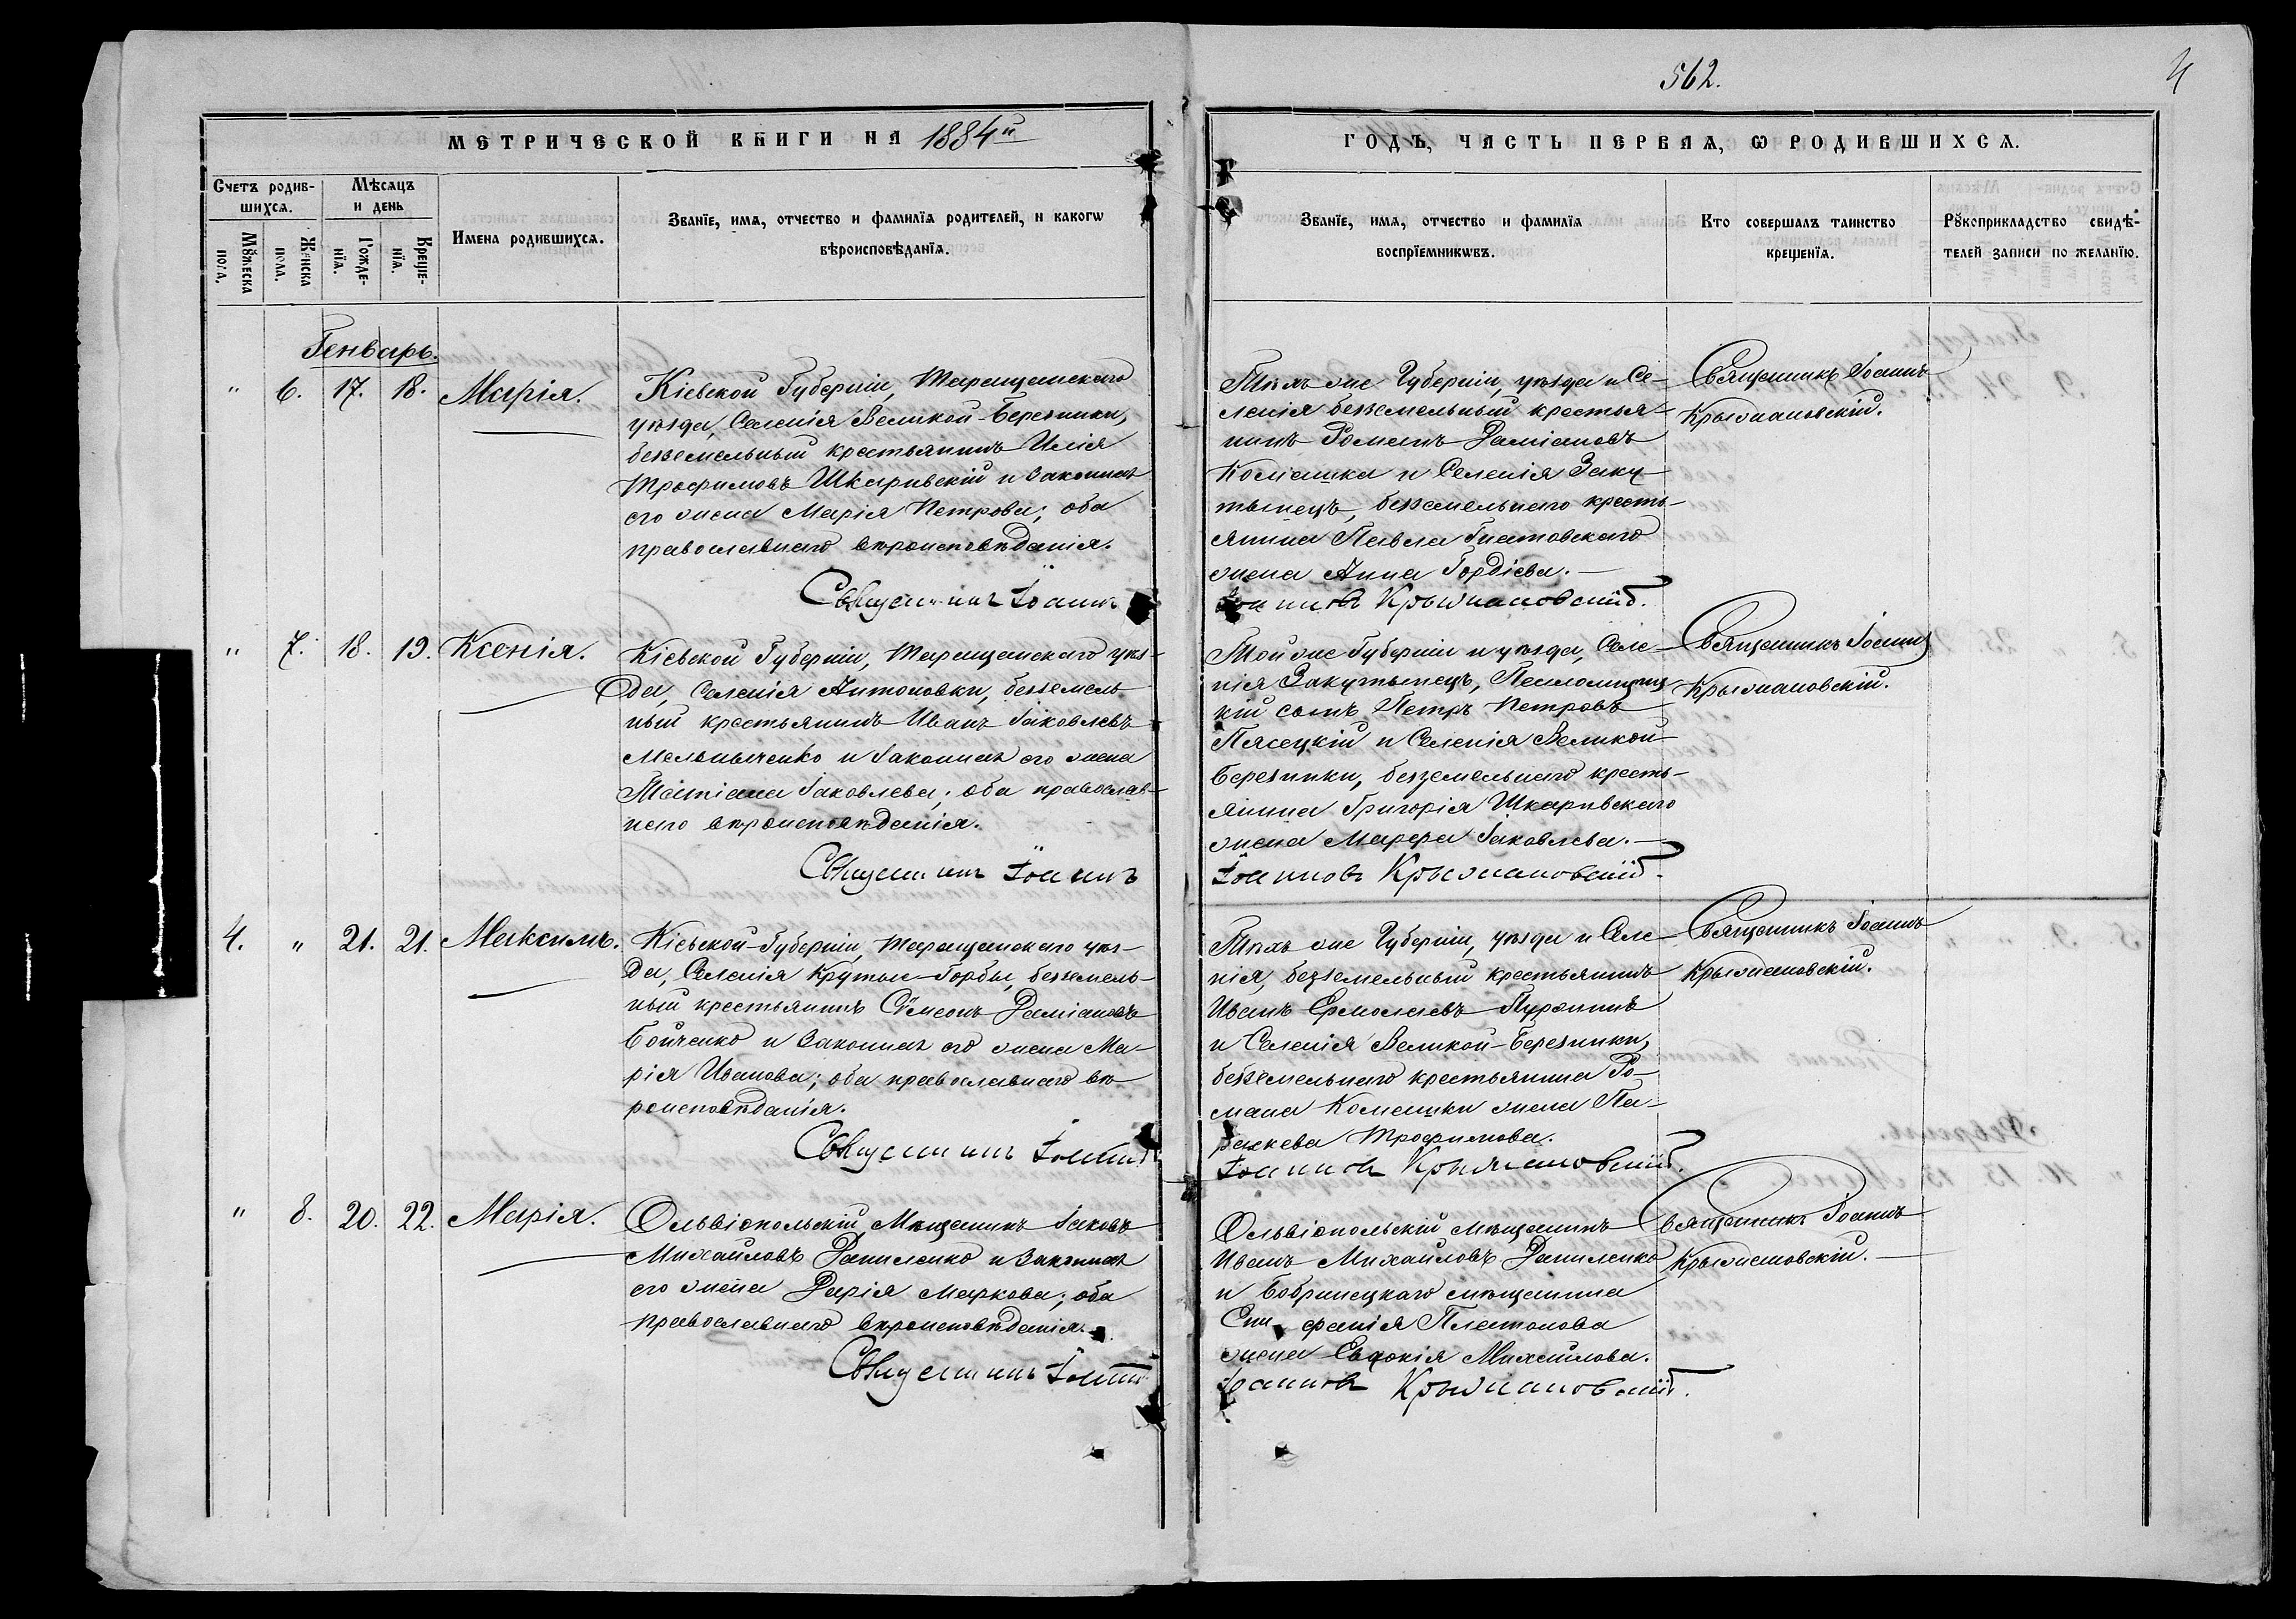 562.
4
МЕТРИЧЕСКОЙ КНИГИ НА 1884й
ГОДЪ, ЧАСТЬ ПЕРВАЯ, Ѡ РОДИВШИХСЯ.
Счетъ родив-
шихся.
Мѣсяцъ
и день
Мꙋжеска
пола.
Женска
пола.
Рожде-
нїя.
Креще-
нїя.
Имена родившихся.
Званїе, имя, отчество и фамилїя родителей, и какогѡ
вѣроисповѣданїя.
Званїе, имя, отчество и фамилїя
воспрїемникѡвъ.
Кто совершалъ таинство
крещенїя.
Рꙋкоприкладство свидѣ-
телей записи по желанїю.
Генварь.
" 6. 17. 18. Марія.
Кіевской Губерніи, Таращанскаго
уѣзда, Селенія Великой-Березянки,
безземельный крестьянинъ Илія
Трофимовъ Шкаривскій и законная
его жена Марія Петрова; оба
православнаго вѣроисповѣданія.
Священникъ Іоаннъ
Тѣхъ же Губерніи, уѣзда и Се-
ленія безземельный крестья-
нинъ Романъ Даміановъ
Комашка и Селенія Заку-
тынецъ, безземельнаго кресть-
янина Павла Гнатовскаго
жена Анна Гордіева.
Іоанновъ Крыжановскій.
Священникъ Іоаннъ
Крыжановскій.
" 7. 18. 19. Ксенія.
Кіевской Губерніи, Таращанскаго уѣз-
да, Селенія Антоновки, безземель-
ный крестьянинъ Иванъ Іаковлевъ
Мельныченко и законная его жена
Татіана Іаковлева; оба православ-
наго вѣроисповѣданія.
Священникъ Іоаннъ
Той же Губерніи и уѣзда, Селе-
нія Закутынецъ,
кій сынъ Петръ Петровъ
Пясецкій и Селенія Великой-
Березянки, безземельнаго кресть-
янина Григорія Шкаривскаго
жена Марфа Іаковлева.
Іоанновъ Крыжановскій.
Священникъ Іоаннъ
Крыжановскій.
4. " 21. 21. Максимъ.
Кіевской-Губерніи, Таращанскаго уѣз-
да, Селенія Крутые-Горбы, безземель-
ный крестьянинъ Сѵмеонъ Даміановъ
Бойченко и законная его жена Ма-
рія Иванова; оба православнаго вѣ-
роисповѣданія.
Священникъ Іоаннъ
Тѣхъ же Губерніи, уѣзда и Селе-
нія, безземельный крестьянинъ
Иванъ Ермолаевъ
и Селенія Великой-Березянки,
безземельнаго крестьянина Ро-
мана Комашки жена Па-
раскева Трофимова.
Іоанновъ Крыжановскій.
Священникъ Іоаннъ
Крыжановскій.
" 8. 20. 22. Марія.
Ольвіопольскій Мѣщанинъ Іаковъ
Михайловъ Даниленко и законная
его жена Дарія Маркова; оба
православнаго вѣроисповѣданія.
Священникъ Іоаннъ
Ольвіопольскій мѣщанинъ
Иванъ Михайловъ Даниленко
и Бобринецкаго мѣщанина
Епифанія Платонова
жена Евдокія Михайлова.
Іоанновъ Крыжановскій.
Священникъ Іоаннъ
Крыжановскій.